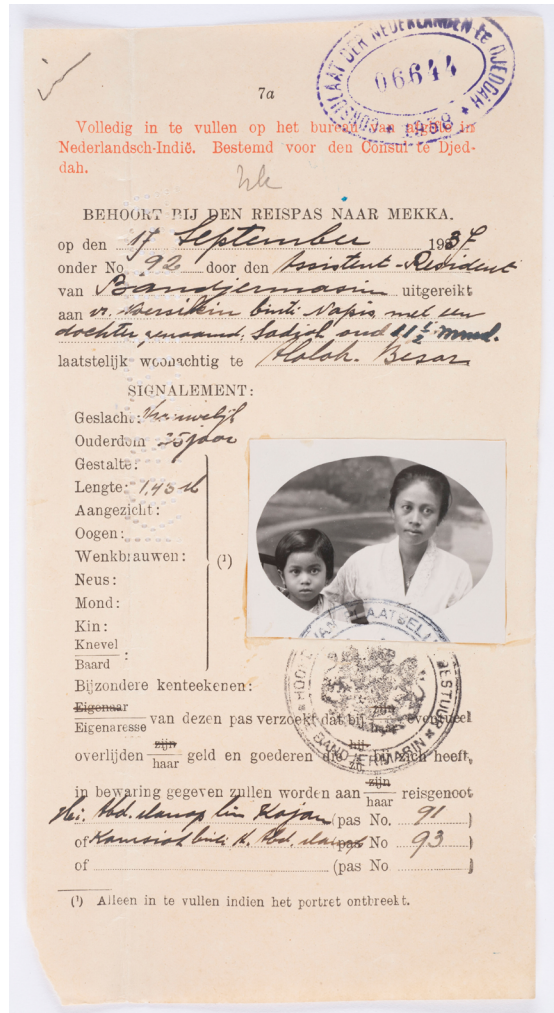 CONSULAAT DER NEDERLANDEN te DJEDDAH
06644
1938
7a
Volledig in te vullen op het bureau van afgifte in
Nederlandsch-Indië. Bestemd voor den Consul te Djed-
dah.
BEHOORT BIJ DEN REISPAS NAAR MEKKA.
op den 17 September 1937
onder No. 92 door den Assistent-Resident
van Bandjermasin uitgereikt
aan vr. Kersikin binti Napis met een
dochter genaamd: Sadiah oud 11½ mnd.
laatstelijk woonachtig te Aloloh. Besar
SIGNALEMENT:
Geslacht: Vrouwelijk
Ouderdom 25 jaar
Gestalte:
Lengte: 1,45 M
Aangezicht:
Oogen:
Wenkbrauwen: (¹)
Neus:
Mond:
Kin:
Knevel
Baard :
Bijzondere kenteekenen:
Eigenaar zijn
Eigenaresse van dezen pas verzoekt dat bij haar eventueel
overlijden zijn haar geld en goederen die hij zij bij zich heeft,
in bewaring gegeven zullen worden aan zijn haar reisgenoot
Hi. Abd. Manap bin Kajan (pas No. 91 )
of Kamsiah binti H. Abd. (pas No 93 )
of (pas No )
HOOFD VAN PLAATSELIJK BESTUUR
BANDJERMASIN
(¹) Alleen in te vullen indien het portret ontbreekt.